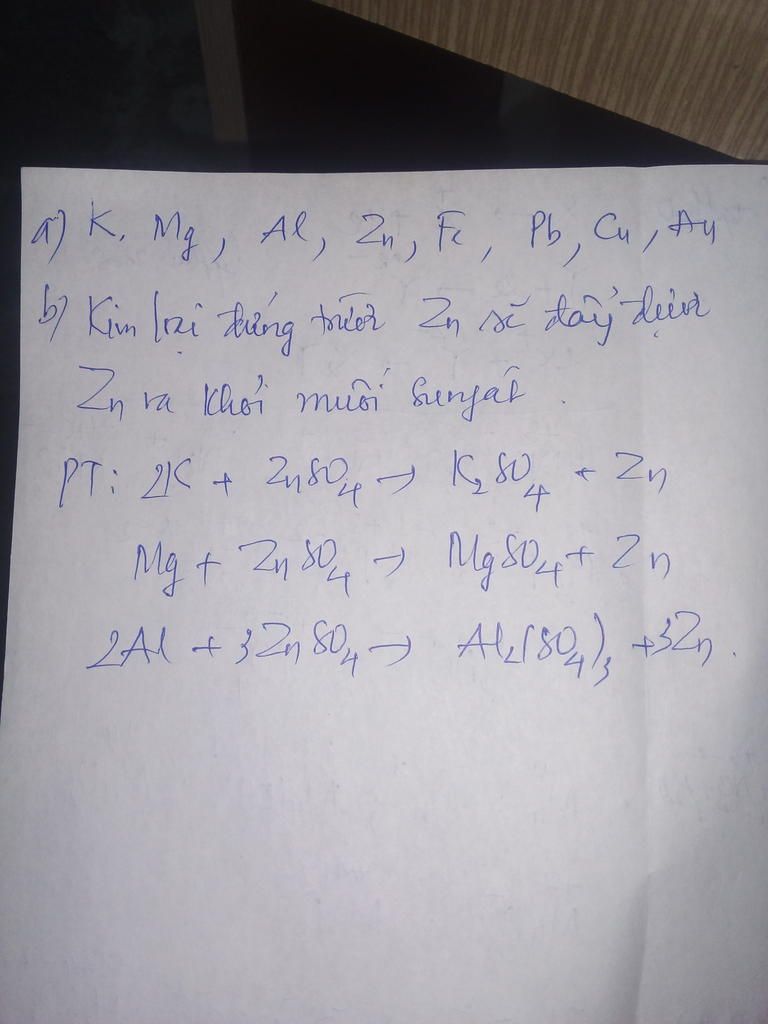 a) K, Mg, Al, Zn, Fe, Pb, Cu, Au
b) Kim loại đứng trước Zn sẽ đẩy được
Zn ra khỏi muối sunfat.
PT: 2K + ZnSO4 → K2SO4 + Zn
Mg + ZnSO4 → MgSO4 + Zn
2Al + 3ZnSO4 → Al2(SO4)3 + 3Zn.